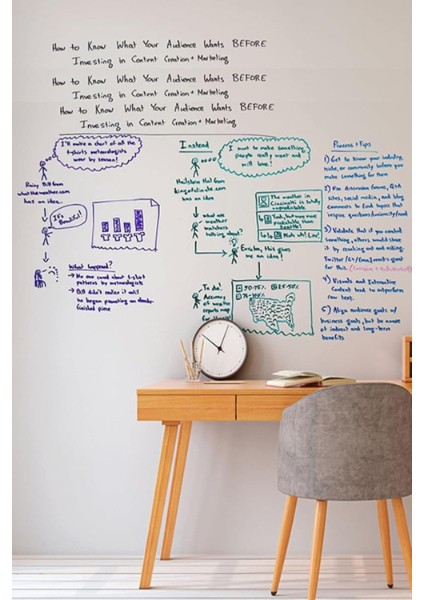 How to Know What Your Audience Wants BEFORE
Investing in Content Creation + Marketing
How to Know What Your Audience Wants BEFORE
Investing in Content Creation + Marketing
How to Know What Your Audience Wants BEFORE
Investing in Content Creation + Marketing
I'll make a chart of all the
t-shirts meteorologists
wear by season!
Rainy Bill from
whattheweather.com
has an idea...
It's
Beautiful!
What happened?
→ No one cared about t-shirt
patterns by meteorologists
→ Bill didn't realize it until
he began promoting an already
finished piece
Instead
I want to make something
people really want and
will love!
Hailstorm Hal from
kingofclouds.com
has an idea
what are
weather
watchers
talking
about?
The weather in
Cincinnati is totally
unpredictable
Yeah, but more
predictable than
Seattle!
Nuh uh!
Eureka, this gives
me an idea!
To do:
Accuracy
of weather
reports
Process + Tips
1) Get to know your industry,
niche, or community before you
make something for them
2) Use discussion forums, Q&A
sites, social media, and blog
comments to find topics that
inspire questions/curiosity/need
3) Validate that if you created
something, others would share
it by reaching out and asking
Twitter/G+/Email works great
for this.
4) Visuals and Interactive
Content tend to outperform
raw text.
5) Align audience goals w/
business goals, but be aware
of indirect and long-term
benefits